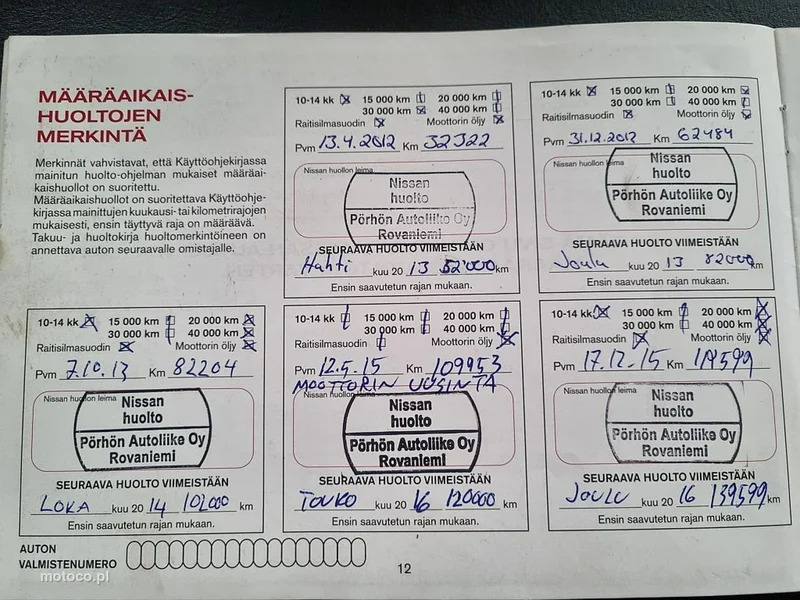 MÄÄRÄAIKAIS-
HUOLTOJEN
MERKINTÄ
Merkinnät vahvistavat, että Käyttöohjekirjassa
mainitun huolto-ohjelman mukaiset määräai-
kaishuollot on suoritettu.
Määräaikaishuollot on suoritettava Käyttöohje-
kirjassa mainittujen kuukausi- tai kilometrirajojen
mukaisesti, ensin täyttyvä raja on määräävä.
Takuu- ja huoltokirja huoltomerkintöineen on
annettava auton seuraavalle omistajalle.
10-14 kk 15 000 km 20 000 km
30 000 km 40 000 km
Raitisilmasuodin Moottorin öljy
Pvm 13.4.2012 Km 32322
Nissan huollon leima
Nissan
huolto
Pörhön Autoliike Oy
Rovaniemi
SEURAAVA HUOLTO VIIMEISTÄÄN
Huhti kuu 20 13 52000 km
Ensin saavutetun rajan mukaan.
10-14 kk 15 000 km 20 000 km
30 000 km 40 000 km
Raitisilmasuodin Moottorin öljy
Pvm 31.12.2012 Km 62484
Nissan huollon leima
Nissan
huolto
Pörhön Autoliike Oy
Rovaniemi
SEURAAVA HUOLTO VIIMEISTÄÄN
Joulu kuu 20 13 82000 km
Ensin saavutetun rajan mukaan.
10-14 kk 15 000 km 20 000 km
30 000 km 40 000 km
Raitisilmasuodin Moottorin öljy
Pvm 7.10.13 Km 82204
Nissan huollon leima
Nissan
huolto
Pörhön Autoliike Oy
Rovaniemi
SEURAAVA HUOLTO VIIMEISTÄÄN
LOKA kuu 20 14 102000 km
Ensin saavutetun rajan mukaan.
10-14 kk 15 000 km 20 000 km
30 000 km 40 000 km
Raitisilmasuodin Moottorin öljy
Pvm 12.5.15 Km 109953
MOOTTORIN UUSINTA
Nissan huollon leima
Nissan
huolto
Pörhön Autoliike Oy
Rovaniemi
SEURAAVA HUOLTO VIIMEISTÄÄN
TOUKO kuu 20 16 120000 km
Ensin saavutetun rajan mukaan.
10-14 kk 15 000 km 20 000 km
30 000 km 40 000 km
Raitisilmasuodin Moottorin öljy
Pvm 17.12.15 Km 119599
Nissan huollon leima
Nissan
huolto
Pörhön Autoliike Oy
Rovaniemi
SEURAAVA HUOLTO VIIMEISTÄÄN
JOULU kuu 20 16 139599 km
Ensin saavutetun rajan mukaan.
AUTON
VALMISTENUMERO
12
motoco.pl